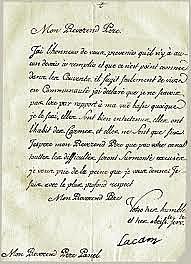 Mon Reverend Pere
J'ai l'honneur de vous prevenir qu'il n'y a au-
cun devoir a remplir et que ce n'est point comme
dans les Couvents, il s'agit seulement de vivre
en Communauté j'ai declaré que je ne pouvois
pas lire par rapport à ma vue
je le sai, elles sont bien entretenues, elles ont
l'habit des Carmes, et elles ne sont que
J'espere mon Reverend Pere que
toutes les difficultés, seront
je veux que de la peine que je vous donne. Je
suis avec le plus profond respect
Mon Reverend Pere
Votre tres humble
et tres obeist.
Lacom
Mon Reverend Pere Panel